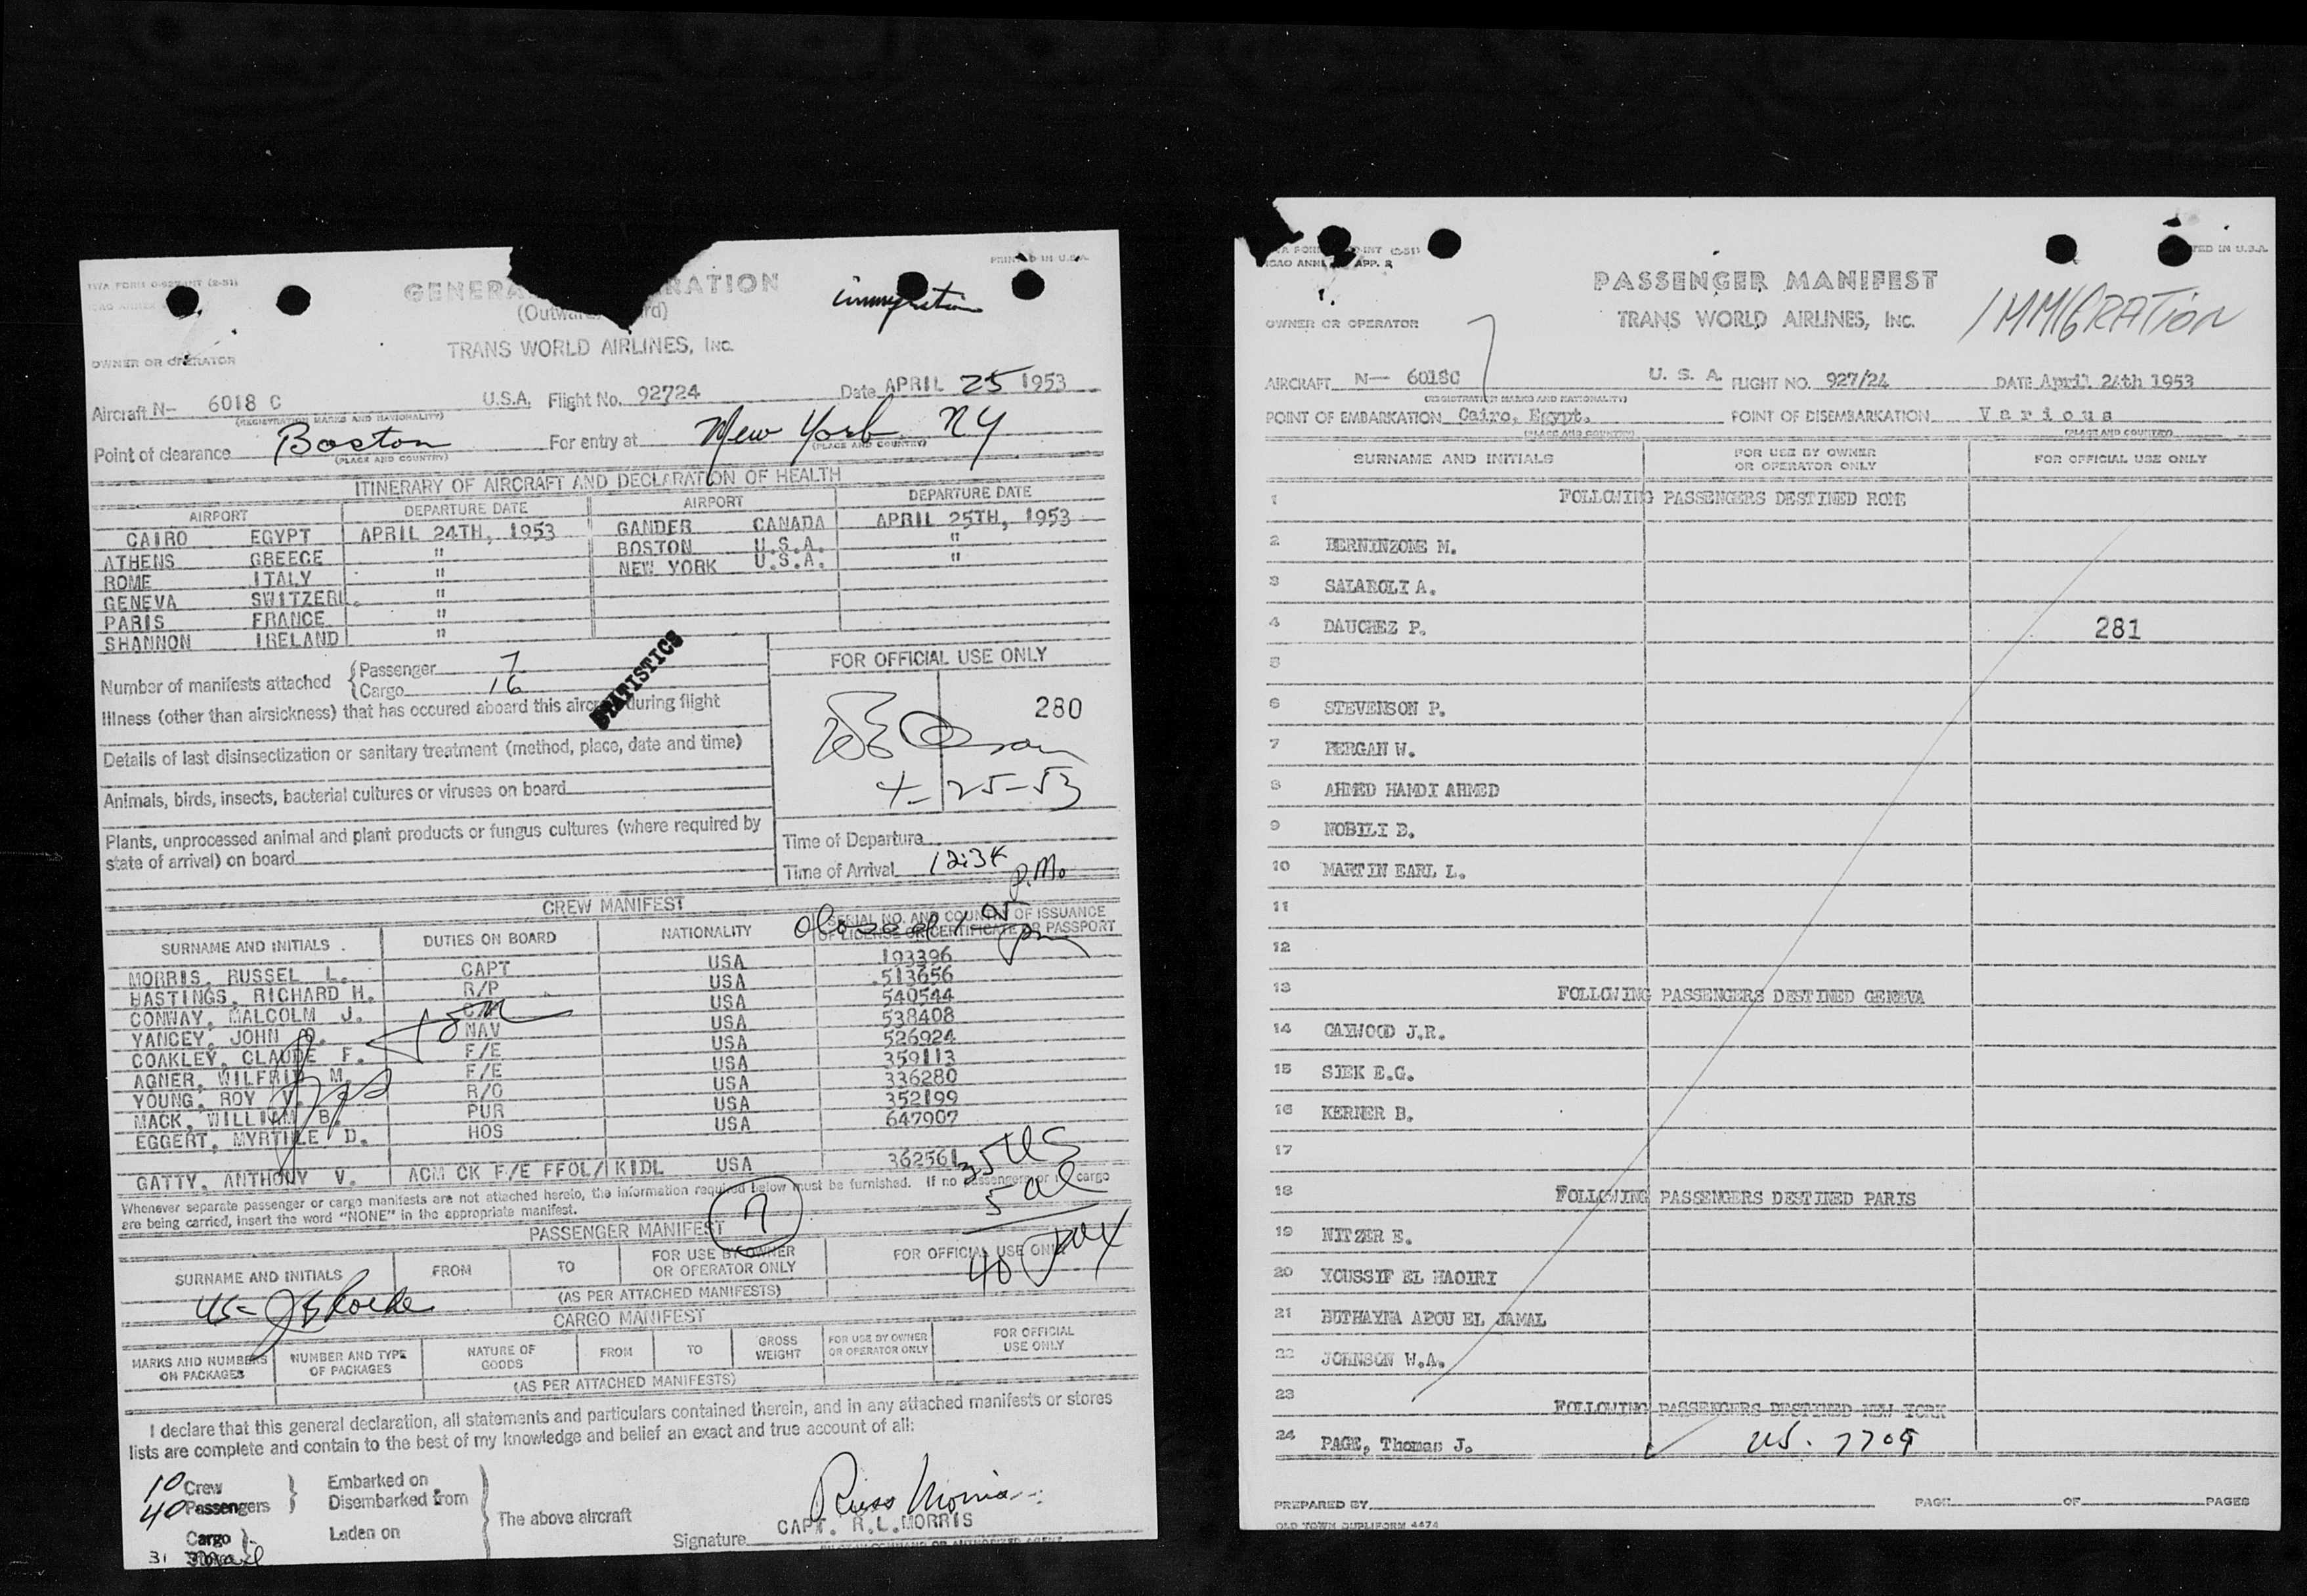 TWA FORM O-927-INT (2-51)
PRINTED IN U.S.A.
GENERA RATION
(Outwar rd)
immigration
OWNER OR OPERATOR
TRANS WORLD AIRLINES, INC.
Aircraft N- 6018 C U.S.A. Flight No. 92724 Date APRIL 25 1953
(REGISTRATION MARKS AND NATIONALITY)
Point of clearance Boston For entry at New York NY
(PLACE AND COUNTRY) (PLACE AND COUNTRY)
ITINERARY OF AIRCRAFT AND DECLARATION OF HEALTH
AIRPORT DEPARTURE DATE AIRPORT DEPARTURE DATE
CAIRO EGYPT APRIL 24TH, 1953 GANDER CANADA APRIL 25TH, 1953
ATHENS GREECE " BOSTON U.S.A. "
ROME ITALY " NEW YORK U.S.A. "
GENEVA SWITZERL. "
PARIS FRANCE "
SHANNON IRELAND "
Number of manifests attached { Passenger 7
{ Cargo 16
STATISTICS
Illness (other than airsickness) that has occured aboard this aircraft during flight
Details of last disinsectization or sanitary treatment (method, place, date and time)
Animals, birds, insects, bacterial cultures or viruses on board
Plants, unprocessed animal and plant products or fungus cultures (where required by
state of arrival) on board
FOR OFFICIAL USE ONLY
280
4-25-53
Time of Departure
Time of Arrival 12:34 P.M.
CREW MANIFEST
SURNAME AND INITIALS DUTIES ON BOARD NATIONALITY SERIAL NO. AND COUNTRY OF ISSUANCE
OF LICENSE OR CERTIFICATE OR PASSPORT
MORRIS, RUSSEL L. CAPT USA 193396
HASTINGS, RICHARD H. R/P USA 513656
CONWAY, MALCOLM J. USA 540544
YANCEY, JOHN O. NAV USA 538408
COAKLEY, CLAUDE F. F/E USA 526924
AGNER, WILFRID M. F/E USA 359113
YOUNG, ROY V. R/O USA 336280
MACK, WILLIAM B. PUR USA 352199
EGGERT, MYRTHLE D. HOS USA 647907
GATTY, ANTHONY V. ACM CK F/E FFOL/KIDL USA 362561
35 US
5 al
40
Whenever separate passenger or cargo manifests are not attached hereto, the information required below must be furnished. If no passengers or no cargo
are being carried, insert the word "NONE" in the appropriate manifest.
7
PASSENGER MANIFEST
SURNAME AND INITIALS FROM TO FOR USE BY OWNER OR OPERATOR ONLY FOR OFFICIAL USE ONLY
(AS PER ATTACHED MANIFESTS)
CARGO MANIFEST
MARKS AND NUMBERS ON PACKAGES NUMBER AND TYPE OF PACKAGES NATURE OF GOODS FROM TO GROSS WEIGHT FOR USE BY OWNER OR OPERATOR ONLY FOR OFFICIAL USE ONLY
(AS PER ATTACHED MANIFESTS)
I declare that this general declaration, all statements and particulars contained therein, and in any attached manifests or stores
lists are complete and contain to the best of my knowledge and belief an exact and true account of all:
10 Crew } Embarked on
40 Passengers Disembarked from } The above aircraft
Cargo } Laden on
31
Russ Morris
Signature CAPT. R.L.MORRIS
PILOT IN COMMAND OR AUTHORIZED AGENT
ICAO ANNEX APP. 2
PASSENGER MANIFEST
OWNER OR OPERATOR
TRANS WORLD AIRLINES, INC.
IMMIGRATION
7
AIRCRAFT N- 6018C U. S. A. FLIGHT NO. 927/24 DATE April 24th 1953
(REGISTRATION MARKS AND NATIONALITY)
POINT OF EMBARKATION Cairo, Egypt. POINT OF DISEMBARKATION Various
(PLACE AND COUNTRY) (PLACE AND COUNTRY)
SURNAME AND INITIALS FOR USE BY OWNER OR OPERATOR ONLY FOR OFFICIAL USE ONLY
1 FOLLOWING PASSENGERS DESTINED ROME
2 BERNINZONE M.
3 SALAROLI A.
4 DAUCHEZ P. 281
5
6 STEVENSON P.
7 PERGAN W.
8 AHMED HAMDI AHMED
9 NOBILI B.
10 MARTIN EARL L.
11
12
13 FOLLOWING PASSENGERS DESTINED GENEVA
14 CAYWOOD J.R.
15 SIEK E.G.
16 KERNER B.
17
18 FOLLOWING PASSENGERS DESTINED PARIS
19 NITZER E.
20 YOUSSIF EL HAOIRI
21 BUTHAYNA ABOU EL JAMAL
22 JOHNSON W.A.
23 FOLLOWING PASSENGERS DESTINED NEW YORK
24 PAGE, Thomas J. US. 7709
PREPARED BY PAGE OF PAGES
OLD TOWN DUPLIFORM 4474